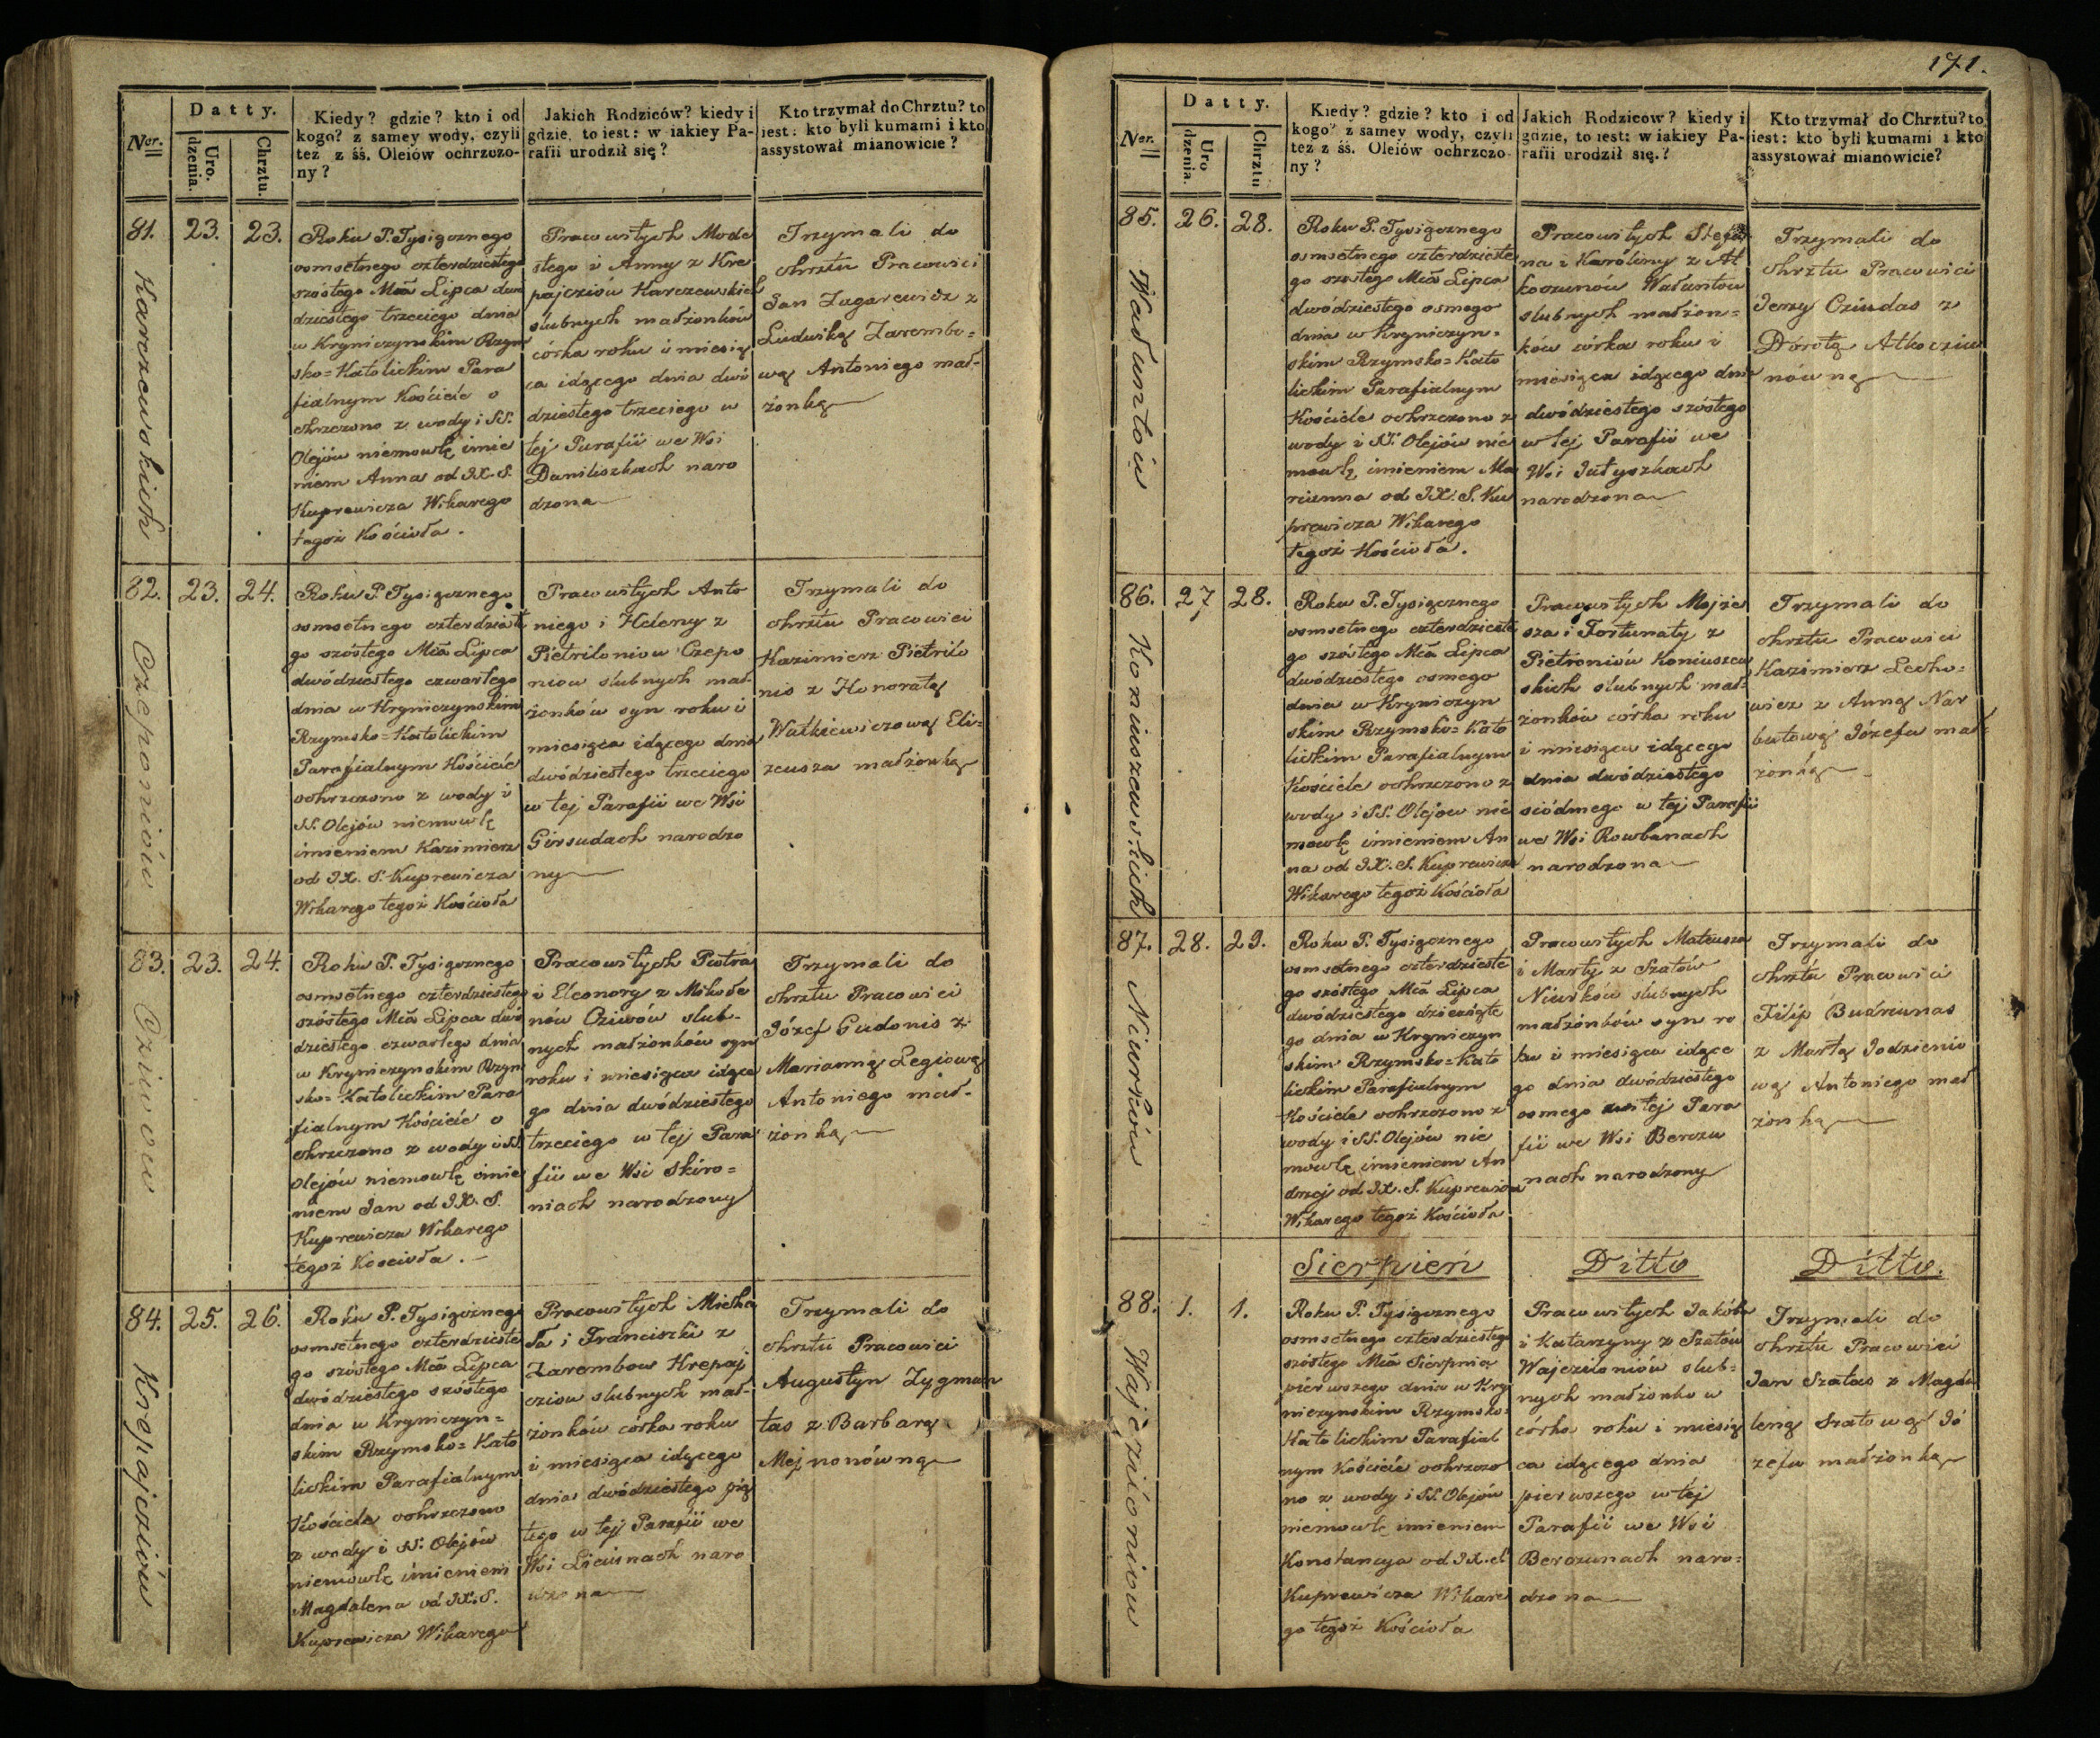 Ner.
Datty.
Uro.
dzenia.
Chrztu.
Kiedy? gdzie? kto i od
kogo? z samey wody, czyli
też z śś. Oleiów ochrzczo-
ny?
Jakich Rodziców? kiedy i
gdzie, to iest: w iakiey Pa-
rafii urodził się?
Kto trzymał do Chrztu? to
iest: kto byli kumami i kto
assystował mianowicie?
81.
23.
23.
Karczewskich
Roku P. Tysiącznego
osmsetnego czterdziestego
szóstego Mca Lipca dwu
dziestego trzeciego dnia
w Kryniczynskim Rzym
sko=Katolickim Para
fialnym Kościele o
chrzczono z wody i SS.
Olejów niemowlę imie
niem Anna od JX. S.
Kuprewicza Wikarego
tegoż Kościoła.
Pracowitych Mode
stego i Anny z Kre
pajcziów Karczewskich
slubnych małżonków
córka roku i miesią
ca idącego dnia dwó
dziestego trzeciego w
tej Parafii we Wsi
Daniliszkach naro
dzona
Trzymali do
chrztu Pracowici
Jan Zugarewicz z
Ludwiką Zarembo=
wą Antoniego mał-
żonką
82.
23.
24.
Czeponiów
Roku P. Tysiącznego
osmsetnego czterdzieste
go szóstego Mca Lipca
dwódziestego czwartego
dnia w Kryniczynskim
Rzymsko=Katolickim
Parafialnym Kościele
ochrzczono z wody i
SS. Olejów niemowlę
imieniem Kazimierz
od JX. S. Kuprewicza
Wikarego tegoż Kościoła
Pracowitych Anto
niego i Heleny z
Pietriloniow Czepo
niow slubnych mał
żonków syn roku i
miesiąca idącego dnia
dwódziestego trzeciego
w tej Parafii we Wsi
Girsudach narodzo
ny
Trzymali do
chrztu Pracowici
Kazimierz Pietrilo
nis z Honoratą
Watkiewiczową Eli=
zeusza małżonką
83.
23.
24.
Cziwow
Roku P. Tysiącznego
osmsetnego czterdziestego
szóstego Mca Lipca dwó
dziestego czwartego dnia
w Krynicznynskim Rzym
sko=Katolickim Para
fialnym Kościele o
chrzczono z wody i SS.
Olejów niemowlę imie
niem Jan od JX. S.
Kuprewicza Wikarego
tegoż Kościoła.
Pracowitych Piotra
i Eleonory z Mikołe
nów Cziwów slub-
nych małżonków syn
roku i miesiąca idące
go dnia dwódziestego
trzeciego w tej Para
fii we Wsi Skiro=
niach narodzony
Trzymali do
chrztu Pracowici
Józef Gudonis z
Marianną Legiową
Antoniego mał-
żonką
84.
25.
26.
Krepajcziów
Roku P. Tysiącznego
osmsetnego czterdzieste
go szóstego Mca Lipca
dwódziestego szóstego
dnia w Krynicznyn=
skim Rzymsko=Kato
lickim Parafialnym
Kościele ochrzczono
z wody i SS. Olejów
niemowlę imieniem
Magdalena od JX. S.
Kuprewicza Wikarego
Pracowitych Micha
ła i Franciszki z
Zarembow Krepaj
cziow slubnych mał-
żonków córka roku
i miesiąca idącego
dnia dwódziestego pią
tego w tej Parafii we
Wsi Liciunach naro
dzona
Trzymali do
chrztu Pracowici
Augustyn Zygman
tas z Barbarą
Mejnonówną
171.
Ner.
Datty.
Uro
dzenia.
Chrztu
Kiedy? gdzie? kto i od
kogo? z samey wody, czyli
też z śś. Oleiów ochrzczo-
ny?
Jakich Rodziców? kiedy i
gdzie, to iest: w iakiey Pa-
rafii urodził się?
Kto trzymał do Chrztu? to
iest: kto byli kumami i kto
assystował mianowicie?
85.
26.
28.
Wałuntów
Roku P. Tysiącznego
osmsetnego czterdzieste
go szóstego Mca Lipca
dwódziestego osmego
dnia w Krynicznyn=
skim Rzymsko=Kato
lickim Parafialnym
Kościele ochrzczono z
wody i SS. Olejów nie
mowlę imieniem Ma
rianna od JX. S. Ku
prewicza Wikarego
tegoż Kościoła.
Pracowitych Stefa
na i Karoliny z At
koczunów Wałuntów
slubnych małżon=
ków córka roku i
miesiąca idącego dnia
dwódziestego szóstego
w tej Parafii we
Wsi Jutyszkach
narodzona
Trzymali do
chrztu Pracowici
Jerzy Cziudas z
Dorotą Atkocziu
nówną
86.
27
28.
Koniuszewskich
Roku P. Tysiącznego
osmsetnego czterdzieste
go szóstego Mca Lipca
dwódziestego osmego
dnia w Kryniczyn
skim Rzymsko=Kato
lickim Parafialnym
Kościele ochrzczono z
wody i SS. Olejow nie
mowlę imieniem An
na od JX. S. Kuprewicza
Wikarego tegoż Kościoła
Pracowitych Mojże
sza i Fortunaty z
Pietroniów Koniuszew
skich slubnych mał-
żonków córka roku
i miesiąca idącego
dnia dwódziestego
siódmego w tej Parafii
we Wsi Rowbanach
narodzona
Trzymali do
chrztu Pracowici
Kazimierz Lecho=
wicz z Anną Nar
butową Józefa mał
żonką
87.
28.
29.
Niurków
Roku P. Tysiącznego
osmsetnego czterdzieste
go szóstego Mca Lipca
dwódziestego dziewiąte
go dnia w Krynicznyn
skim Rzymsko=Kato
lickim Parafialnym
Kościele ochrzczono z
wody i SS. Olejów nie
mowlę imieniem An
drzej od JX. S. Kuprewicza
Wikarego tegoż Kościoła
Pracowitych Mateusza
i Marty z Szatów
Niurków slubnych
małżonków syn ro
ku i miesiąca idące
go dnia dwódziestego
osmego w tej Para
fii we Wsi Berczu
nach narodzony
Trzymali do
chrztu Pracowici
Filip Budriunas
z Martą Jodzienio
wą Antoniego mał
żonką
Sierpień
Ditto
Ditto.
88.
1.
1.
Wajczioniow
Roku P. Tysiącznego
osmsetnego czterdziestego
szóstego Mca Sierpnia
pierwszego dnia w Kry
niczynskim Rzymsko=
Katolickim Parafial
nym Kościele ochrzczo
no z wody i SS. Olejów
niemowlę imieniem
Konstancya od JX. S.
Kuprewicza Wikare
go tegoż Kościoła
Pracowitych Jakóba
i Katarzyny z Szatów
Wajcziloniów slub=
nych małżonkow
córka roku i miesią
ca idącego dnia
pierwszego w tej
Parafii we Wsi
Berczunach naro=
dzona
Trzymali do
chrztu Pracowici
Jan Szatas z Magda
leną Szatową Jó
zefa małżonką